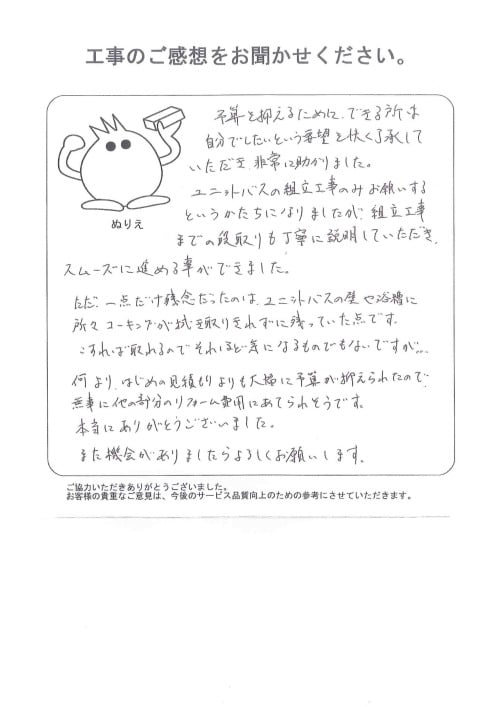 工事のご感想をお聞かせください。
予算を抑えるために、できる所は
自分でしたいという要望を快く了承して
いただき、非常に助かりました。
ユニットバスの組立工事のみお願いする
というかたちになりましたが、組立工事
までの段取りも丁寧に説明していただき、
ぬりえ
スムーズに進める事ができました。
ただ、一点だけ残念だったのは、ユニットバスの壁や浴槽に
所々コーキングが拭き取りきれずに残っていた点です。
こすれば取れるのでそれほど気になるものでもないですが…。
何より、はじめの見積りよりも大幅に予算が抑えられたので、
無事に他の部分のリフォーム費用にあてられそうです。
本当にありがとうございました。
また機会がありましたらよろしくお願いします。
ご協力いただきありがとうございました。
お客様の貴重なご意見は、今後のサービス品質向上のための参考にさせていただきます。